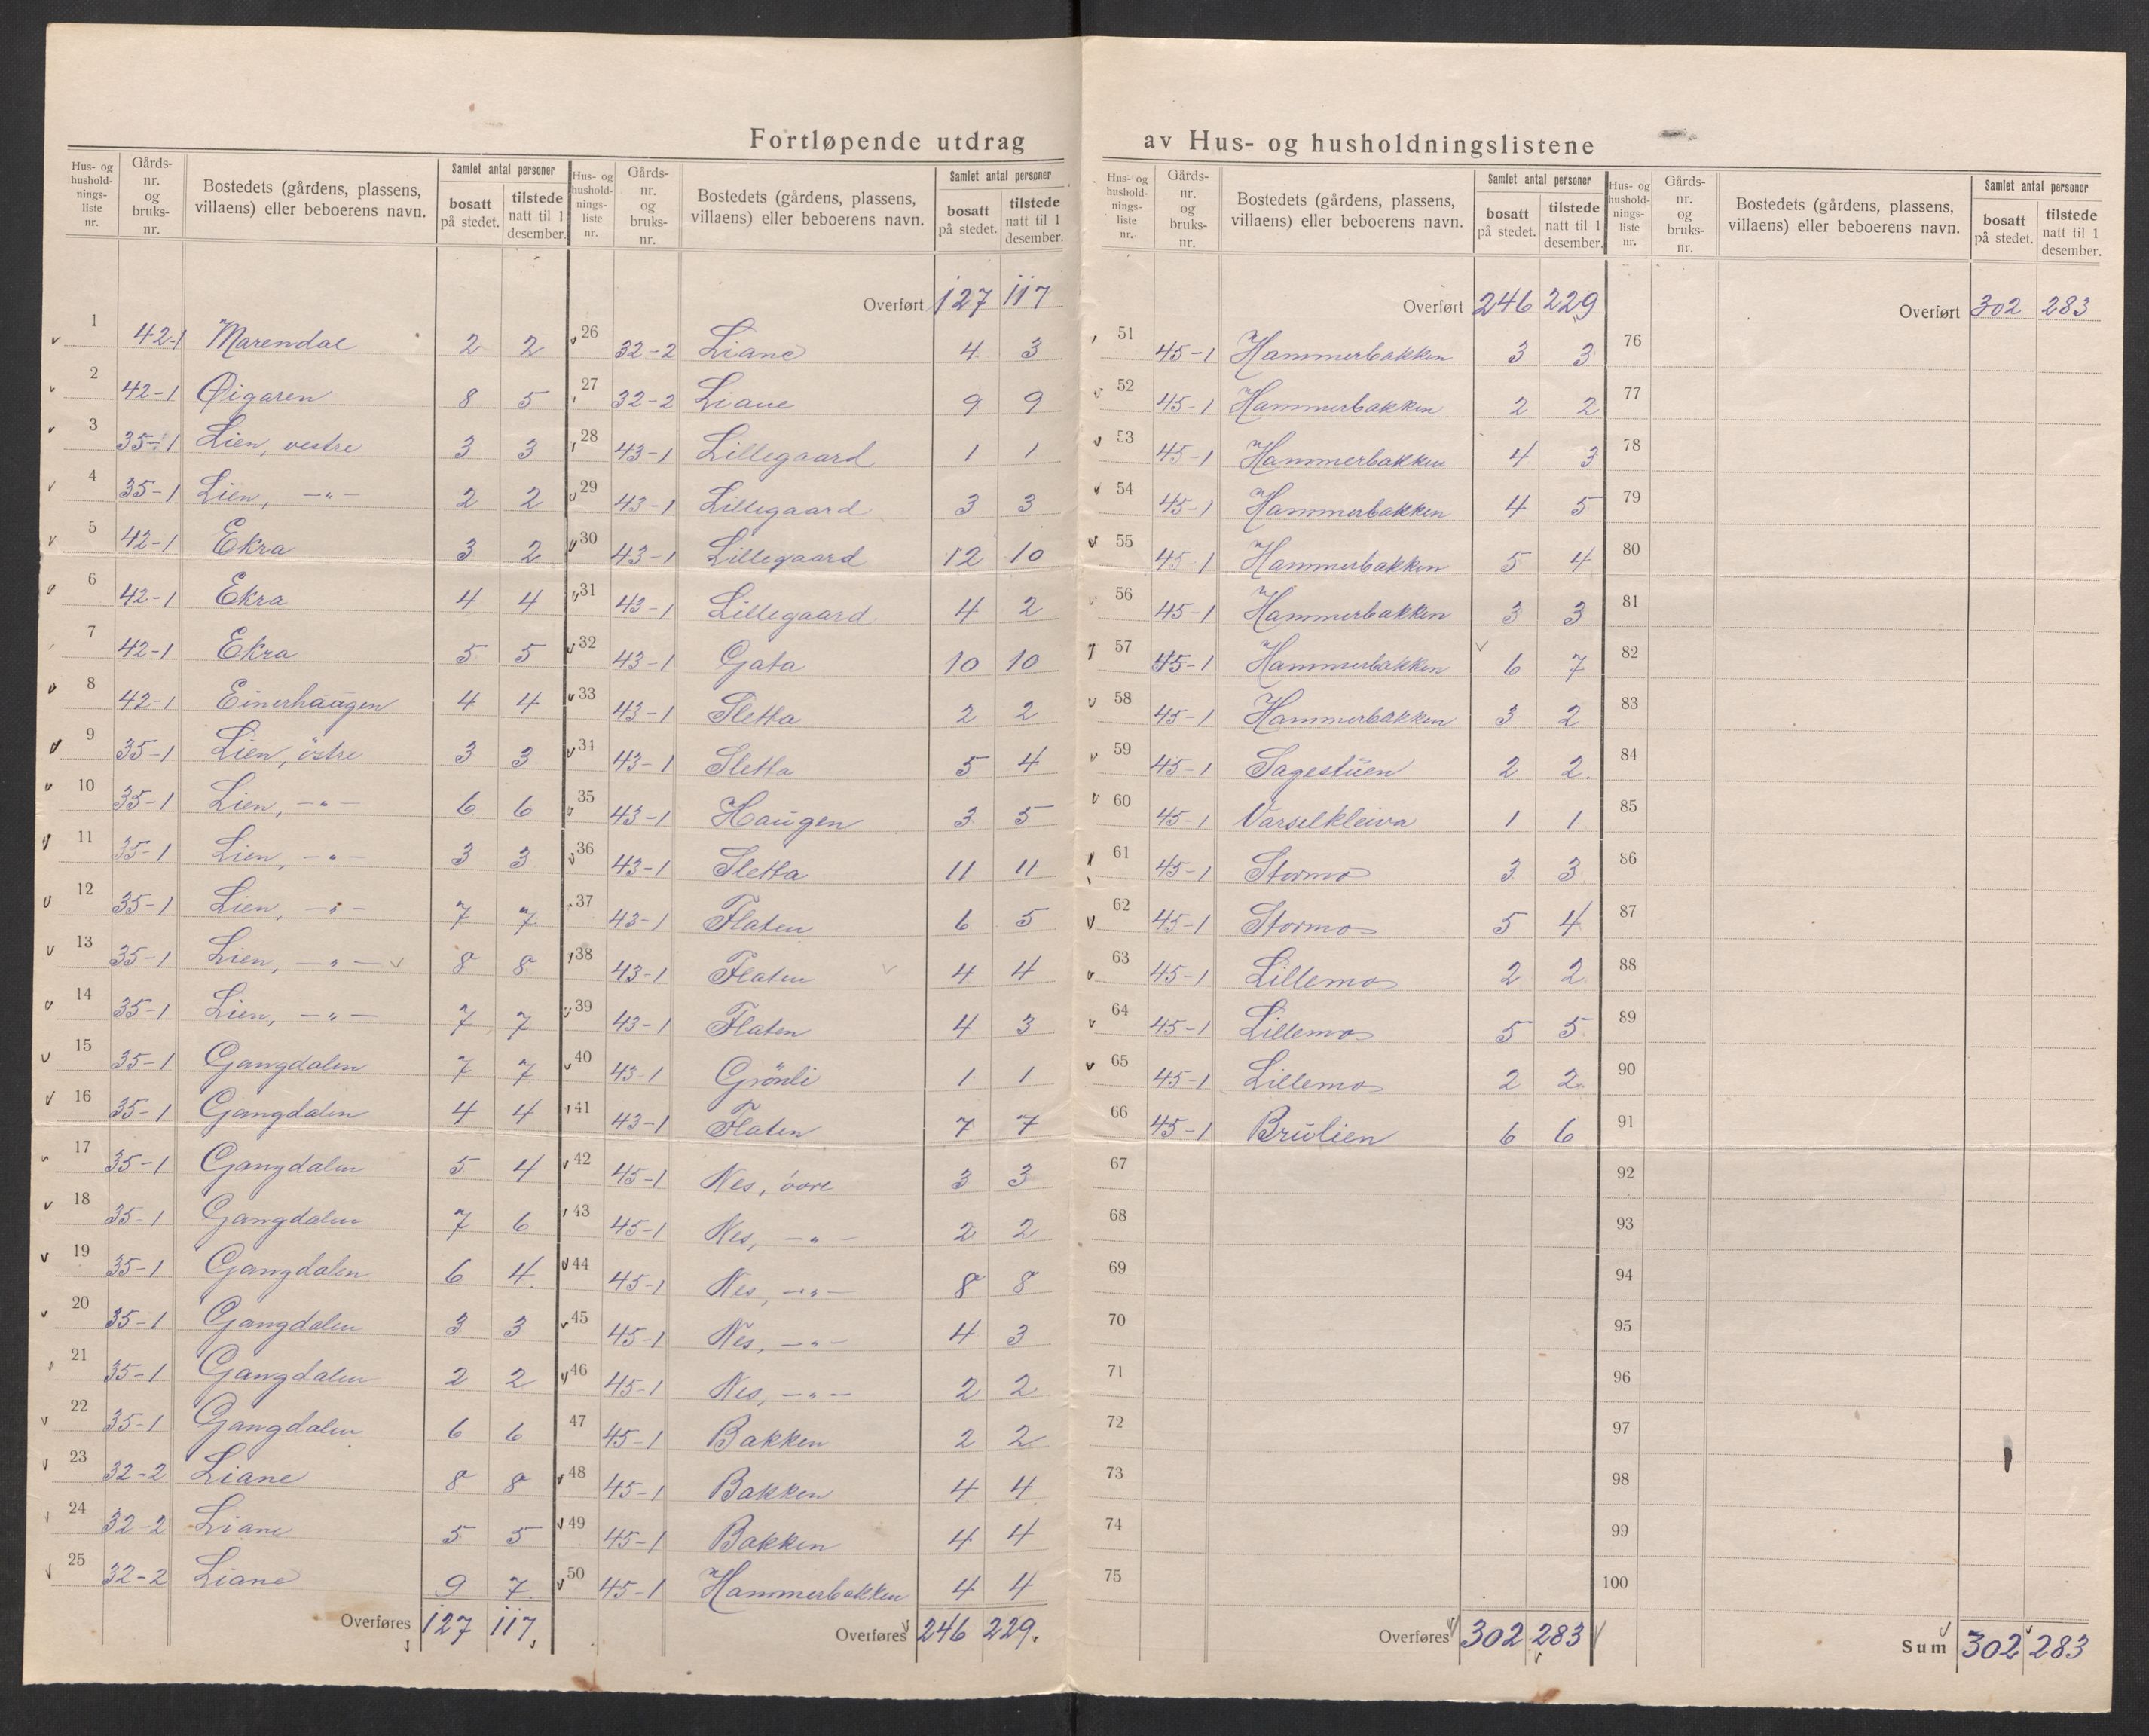 Fortløpende utdrag av Hus- og husholdningslistene
Hus- og hushold-nings-liste nr. | Gårds-nr. og bruks-nr. | Bostedets (gårdens, plassens, villaens) eller beboerens navn. | Samlet antal personer | bosatt på stedet. | tilstede natt til 1 desember.
1 42-1 Marendal 2 2
2 42-1 Øigaren 8 5
3 35-1 Lien, vestre 3 3
4 35-1 Lien, —"— 2 2
5 42-1 Ekra 3 2
6 42-1 Ekra 4 4
7 42-1 Ekra 5 5
8 42-1 Einerhaugen 4 4
9 35-1 Lien, östre 3 3
10 35-1 Lien, —"— 6 6
11 35-1 Lien, —"— 3 3
12 35-1 Lien, —"— 7 7
13 35-1 Lien, —"— 8 8
14 35-1 Lien, —"— 7 7
15 35-1 Gangdalen 7 7
16 35-1 Gangdalen 4 4
17 35-1 Gangdalen 5 4
18 35-1 Gangdalen 7 6
19 35-1 Gangdalen 6 4
20 35-1 Gangdalen 3 3
21 35-1 Gangdalen 2 2
22 35-1 Gangdalen 6 6
23 32-2 Liane 8 8
24 32-2 Liane 5 5
25 32-2 Liane 9 7
Overføres 127 117
Hus- og hushold-nings-liste nr. | Gårds-nr. og bruks-nr. | Bostedets (gårdens, plassens, villaens) eller beboerens navn. | Samlet antal personer | bosatt på stedet. | tilstede natt til 1 desember.
Overført 127 117
26 32-2 Liane 4 3
27 32-2 Liane 9 9
28 43-1 Lillegaard 1 1
29 43-1 Lillegaard 3 3
30 43-1 Lillegaard 12 10
31 43-1 Lillegaard 4 2
32 43-1 Gata 10 10
33 43-1 Sletta 2 2
34 43-1 Sletta 5 4
35 43-1 Haugen 3 5
36 43-1 Sletta 11 11
37 43-1 Flaten 6 5
38 43-1 Flaten 4 4
39 43-1 Flaten 4 3
40 43-1 Grönli 1 1
41 43-1 Flaten 7 7
42 45-1 Nes, övre 3 3
43 45-1 Nes, —"— 2 2
44 45-1 Nes, —"— 8 8
45 45-1 Nes, —"— 4 3
46 45-1 Nes, —"— 2 2
47 45-1 Bakken 2 2
48 45-1 Bakken 4 4
49 45-1 Bakken 4 4
50 45-1 Hammerbakken 4 4
Overføres 246 229.
Hus- og hushold-nings-liste nr. | Gårds-nr. og bruks-nr. | Bostedets (gårdens, plassens, villaens) eller beboerens navn. | Samlet antal personer | bosatt på stedet. | tilstede natt til 1 desember.
Overført 246 229
51 45-1 Hammerbakken 3 3
52 45-1 Hammerbakken 2 2
53 45-1 Hammerbakken 4 3
54 45-1 Hammerbakken 4 5
55 45-1 Hammerbakken 5 4
56 45-1 Hammerbakken 3 3
57 45-1 Hammerbakken 6 7
58 45-1 Hammerbakken 3 2
59 45-1 Sagestuen 2 2.
60 45-1 Varselkleiva 1 1
61 45-1 Stormo 3 3
62 45-1 Stormo 5 4
63 45-1 Lillemo 2 2
64 45-1 Lillemo 5 5
65 45-1 Lillemo 2 2
66 45-1 Brulien 6 6
67
68
69
70
71
72
73
74
75
Overføres 302 283
Hus- og hushold-nings-liste nr. | Gårds-nr. og bruks-nr. | Bostedets (gårdens, plassens, villaens) eller beboerens navn. | Samlet antal personer | bosatt på stedet. | tilstede natt til 1 desember.
Overført 302 283
76
77
78
79
80
81
82
83
84
85
86
87
88
89
90
91
92
93
94
95
96
97
98
99
100
Sum 302 283